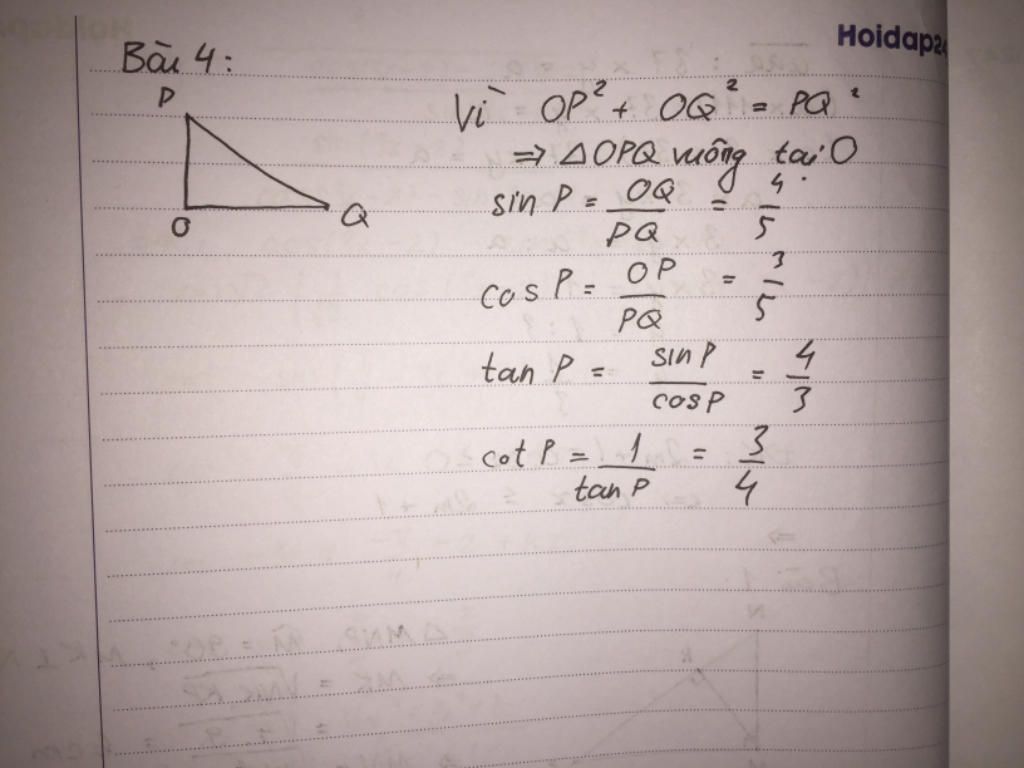 Hoidap24
Bài 4:
P
O
Q
Vì OP² + OQ² = PQ²
⇒ △OPQ vuông tại O
sin P = OQ/PQ = 4/5
cos P = OP/PQ = 3/5
tan P = sin P/cos P = 4/3
cot P = 1/tan P = 3/4